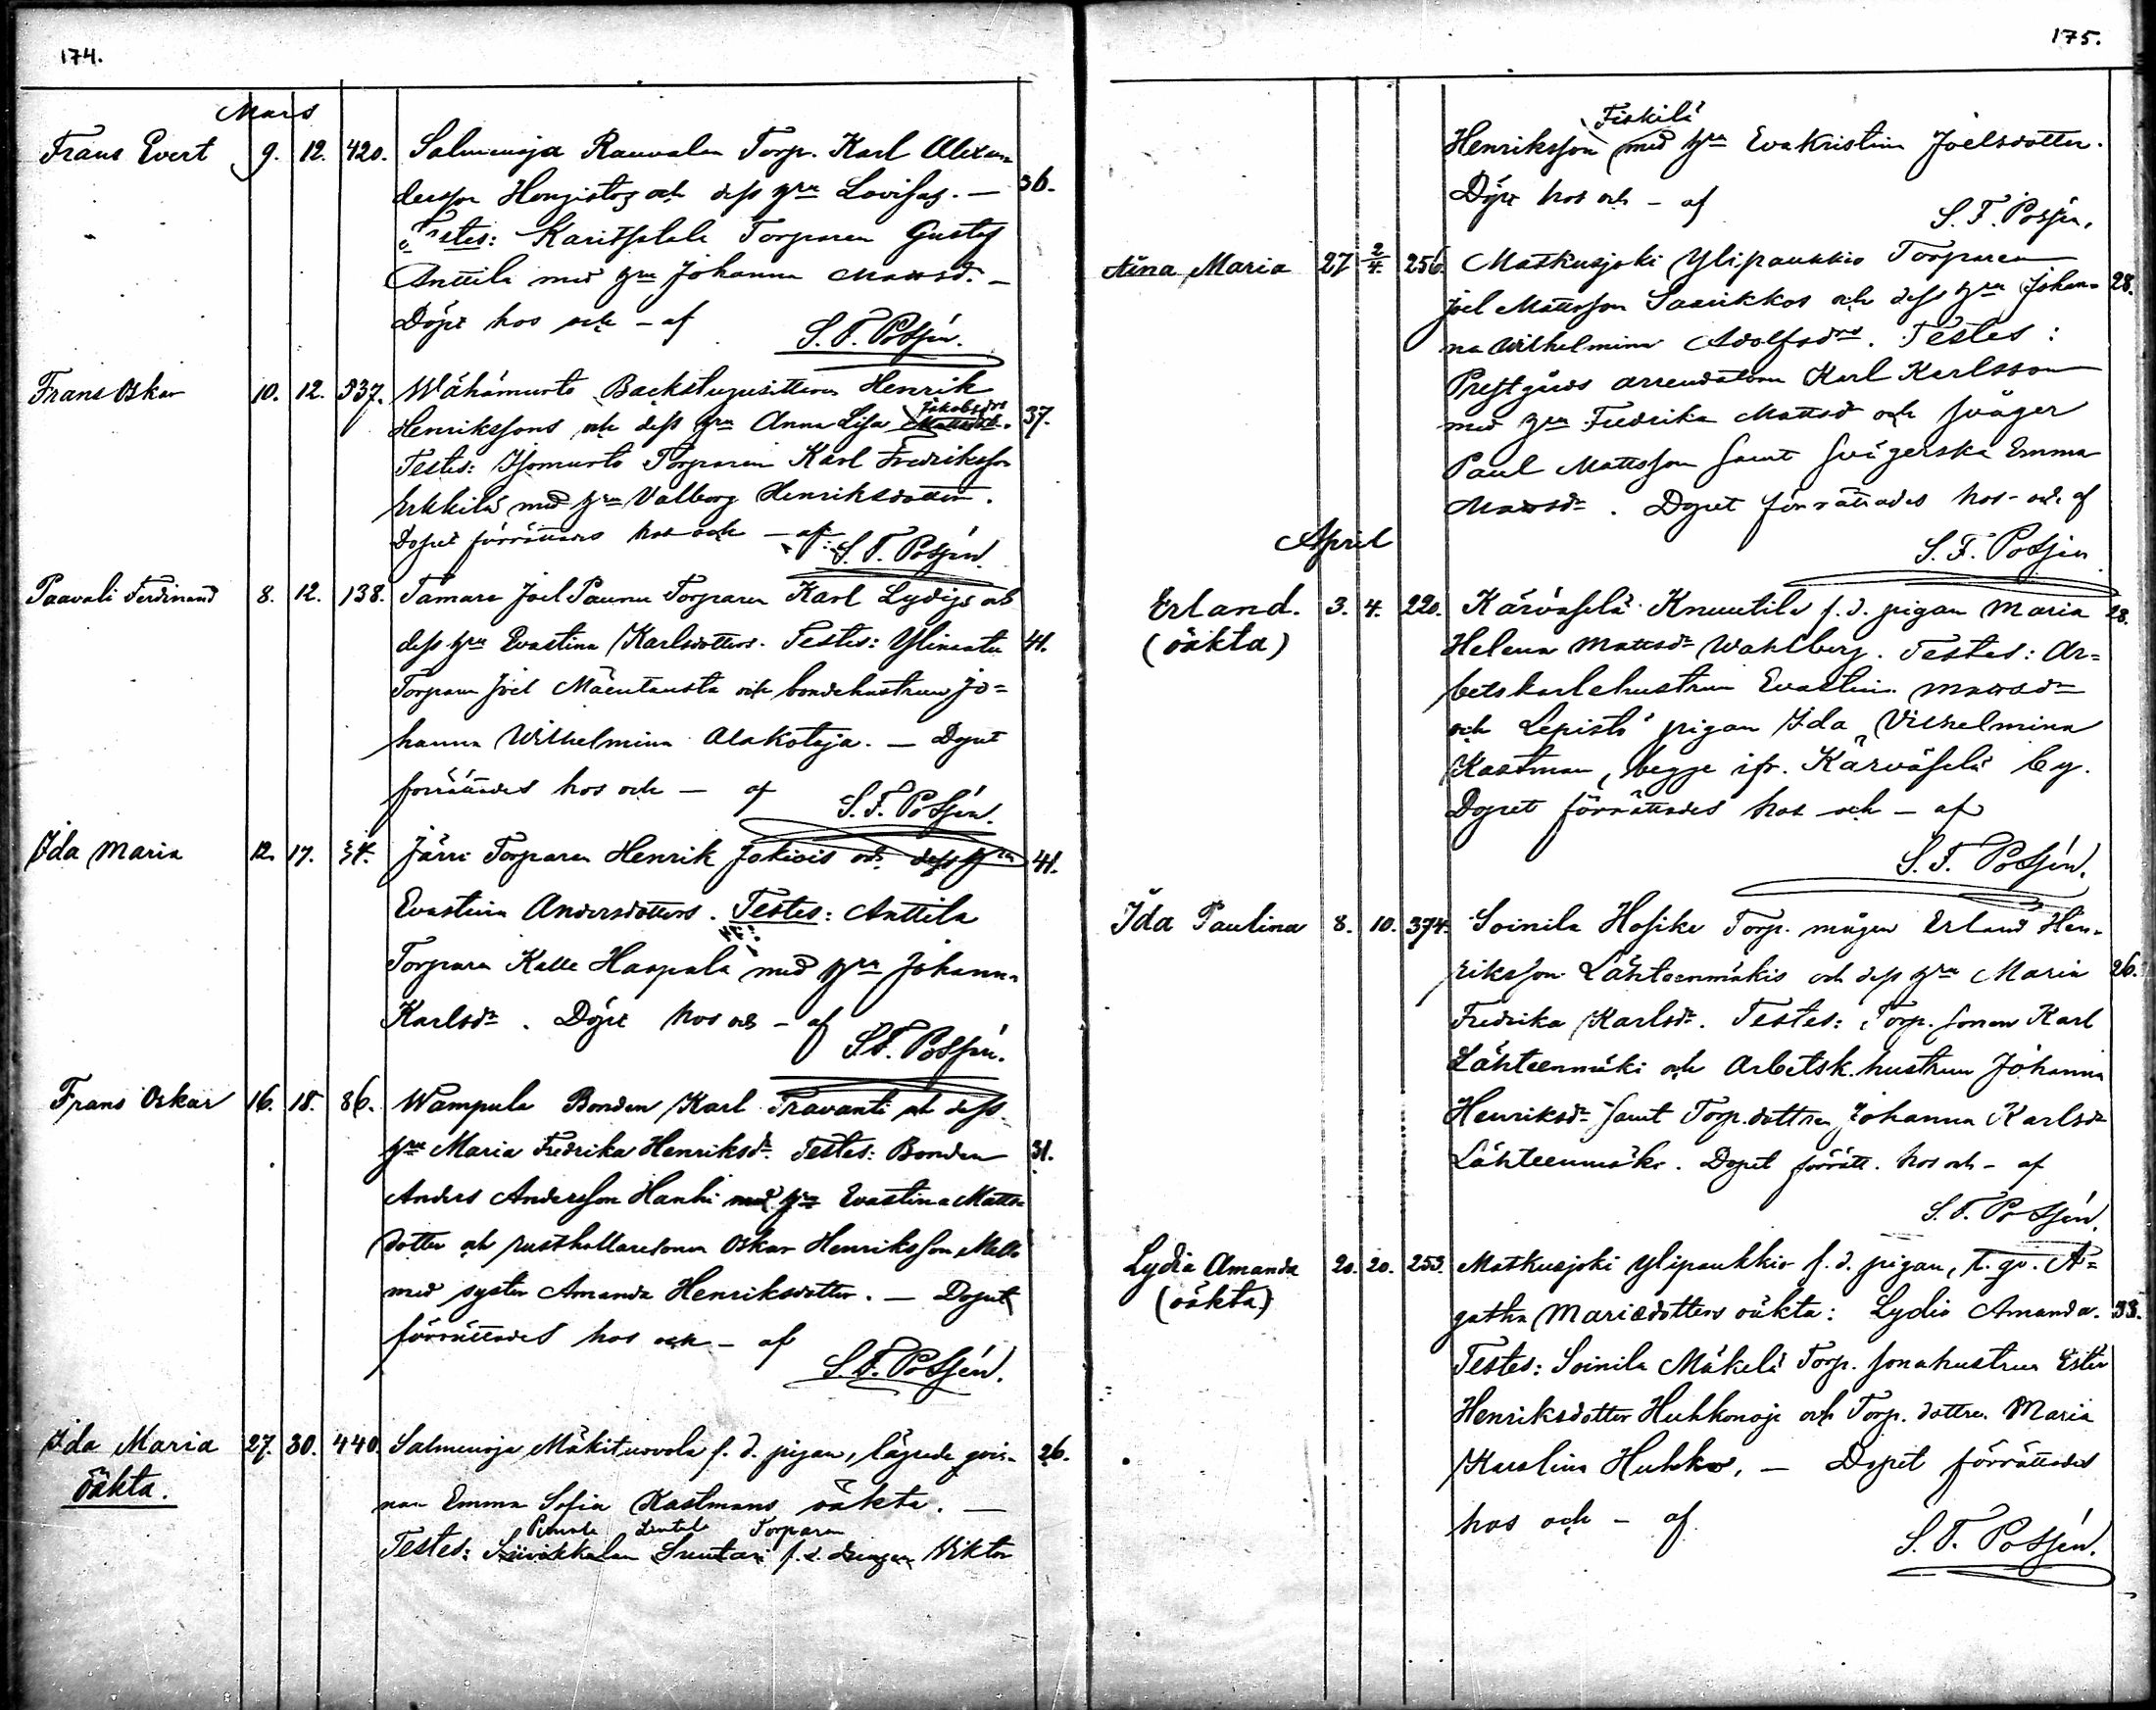 174.
Mars
Frans Evert 9. 12. 420. Salmenoja Rauvala Torp. Karl Alexan
dersson Hongistos och dess hru Lovisas. — 36.
Testes: Karitsalala Torparen Gustaf
Anttila med hru Johanna Mattsdr. —
Döpt hos och - af S. F. Possén.
Frans Oskar 10. 12. 537. Wähämurto Backstugusittaren Henrik
Henrikssons och dess hru Anna Lisa Jakobsdrs Mattsdrs. 37.
Testes: Isomurto Torparen Karl Fredriksson
Erkkilä med hru Valborg Henriksdotter.
Dopet förrättades hos och — af S. F. Possén.
Paavali Ferdinand 8. 12. 138. Tamare Joel Paunu Torparen Karl Lydigs och
dess hru Evastina Karlsdotters. Testes: 41.
Torparen Joel Mäentausta och bondehustrun Jo=
hanna Wilhelmina Alakotaja. — Dopet
förrättades hos och — af S. F. Possén.
Ida Maria 12. 17. 34. Järri Torparen Henrik Jokiois och dess hru 41.
Evastina Andersdotters. Testes: Anttila
Torparen Kalle Haapala med hru Johanna
Karlsdr. Döpt hos och - af
S. F. Possén.
Frans Oskar 16. 18. 86. Wampula Bonden Karl Pravanti och dess
hru Maria Fredrika Henriksdr. Testes: Bonden 31.
Anders Andersson Hanhi med hru Evastina Matts=
dotter och rusthållaresonen Oskar Henriksson Mella
med syster Amanda Henriksdotter. — Dopet
förrättades hos och — af
S. F. Possén.
Ida Maria 27. 30. 440. Salmenoja Mäkituvvola f. d. pigan, lägrade qvin- 26.
oäkta.
nan Emma Sofia Kastmans oäkta. —
Torparen
Testes: Suutari f. d. drengen Viktor
175.
Fiskilä
Henriksson med hru Eva Kristina Joelsdotter.
Döpt hos och - af
S. F. Possén.
Aina Maria 27 2/4. 256. Matkusjoki Ylipaukkio Torparen
Joel Mattsson Saarikkos och dess hru Johan= 28.
na Wilhelmina Adolfsdrs. Testes:
Prestgårds arrendatorn Karl Karlsson
med hru Fredrika Mattsdr och svåger
Paul Mattsson samt svägerska Emma
Mattsdr. Dopet förrättades hos- och af
S. F. Possén
April
Erland. 3. 4. 220. Kärväselä Knuutila f. d. pigan Maria 28.
(oäkta)
Helena Mattsdr Wahlberg. Testes: Ar=
betskarlshustrun Evastina Mattsdr
och Lepistö pigan Ida Vilhelmina
Kastman, begge ifr. Kärväselä by.
Dopet förrättades hos och — af
S. F. Possén.
Ida Paulina 8. 10. 374. Soinila Hosike Torp. mågen Erland Hen=
riksson Lähteenmäkis och dess hru Maria 26.
Fredrika Karlsdr. Testes: Torp. sonen Karl
Lähteenmäki och Arbetsk. hustrun Johanna
Henriksdr samt Torp. dottren Johanna Karlsdr
Lähteenmäki. Dopet förrätt. hos och - af
S. F. Possén.
Lydia Amanda 20. 20. 253. Matkusjoki Ylipaukkio f. d. pigan, t. qv. A=
(oäkta)
gatha Mariedotters oäkta: Lydia Amanda. 33.
Testes: Soinila Mäkelä Torp. sonahustrun Ester
Henriksdotter Huhkonoja och Torp. dottren Maria
Karolina Huhko. — Dopet förrättades
hos och - af
S. F. Possén.